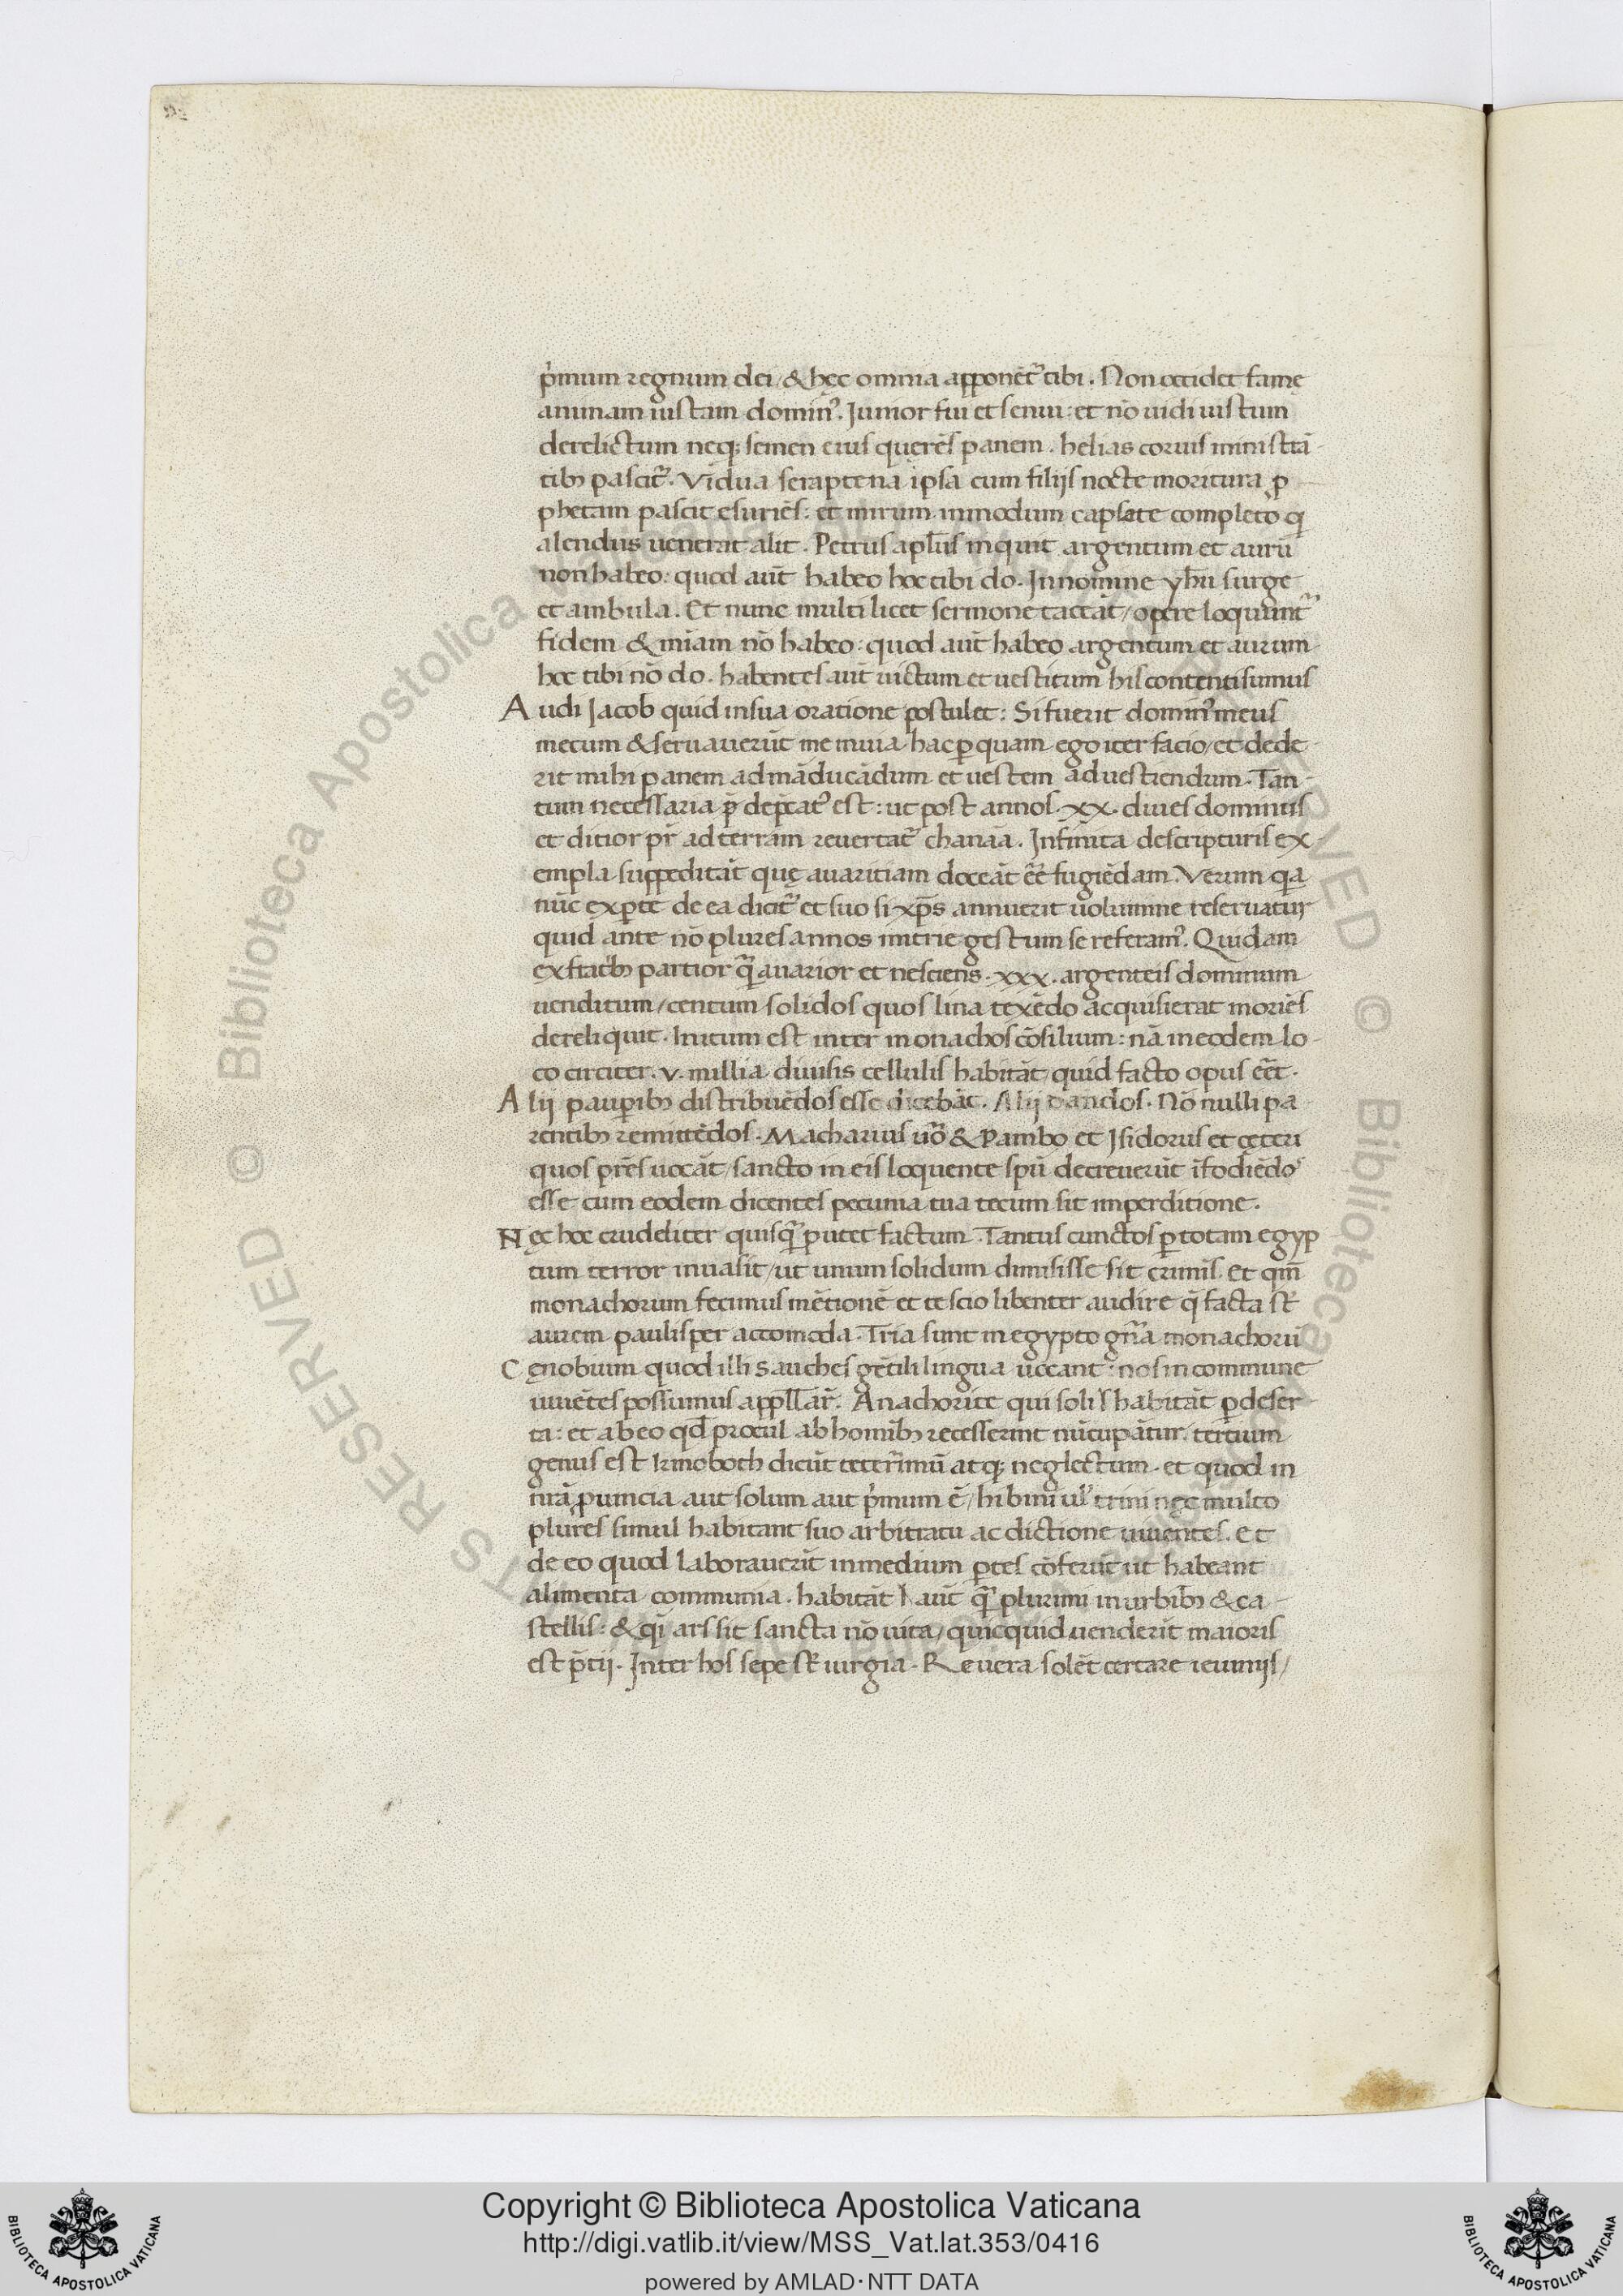 p̓mum regnum dei / & hęc omnia apponēt᷑ tibi . Non occidet famę
animam iustam domin⁹. Junior fui et senui : et nō uidi iustum
derelictum neq; semen eius querēs panem . helias coruis ministrā-
tibꝫ pascit᷑. Vidua seraptena ipsa cum filijs nocte moritura ꝓ-
phetam pascit esuriēs : et mirum inmodum capsate completo q̓
alendus uenerat alit . Petrus apl̄us inquit argentum et aurū
non habeo : quod aūt habeo hoc tibi do . In nomine yhū surge
et ambula . Et nunc multi licet sermone taceāt / opere loquunt᷑
fidem & miam nō habeo : quod aūt habeo argentum et aurum
hoc tibi nō do . habentes aūt uictum et uestitum his contenti sumus
Audi Jacob quid insua oratione postulet : Si fuerit domin⁹ meus
mecum & seruauerūt me in uia hac ꝑ quam ego iter facio / et dede-
rit mihi panem ad māducādum et uestem ad uestiendum . Tan-
tum necessaria p̄ dep̄cat⁹ est : ut post annos . xx . diues dominus
et ditior pr̄ ad terram reuertat᷑ chanaā . Infinita descripturis ex-
empla suppeditāt quę auaritiam doceāt eē᷑ fugiēdam . Verum q̓a
nūc ex ꝑte de ea dicit᷑ et suo si xp̄s annuerit uolumine reseruatur
quid ante nō plures annos nitrie gestum se referam⁹. Quidam
ex frat̓bꝫ partior q̄᷑ auarior et nesciens . xxx . argenteis dominum
uenditum / centum solidos quos lina texēdo acquisierat moriēs
dereliquit . Initum est inter monachos cōsilium : nā in eodem lo-
co circiter . v . millia diuisis cellulis habitāt quid facto opus eēt .
Alii pauꝑibꝫ distribuēdos esse dicebāt . Alij dandos . Nō nulli pa-
rentibꝫ remittēdos . Macharius uō᷑ & Pambo et Jsidorus et ceteri
quos pr̄es uocāt / sancto in eis loquente spū decreuerūt īfodiēdo⁹
esse cum eodem dicentes pecunia tua tecum sit imperditione .
Nęc hoc crudeliter quisq̄᷑ putet factum . Tantus cunctos ꝑ totam egyp-
tum terror inuasit / ut unum solidum dimisisse sit crimīs . et qm̄
monachorum fecimus mētionē et te scio libenter audire q̄ facta st̄
aurem paulisper accomoda . Tria sunt in egypto gn̄᷑a monachorū
Cęnobium quod illi sauches gētili lingua uocant : nos in commune
uiuētes possumus appll̄ar᷑. Anachorite qui soli habitāt ꝑ deser-
ta : et ab eo qd̄ procul ab homibꝫ recesserint nūcupātur . tertium
genus est kmoboth dicūt teter᷑imū atq; neglectum . et quod in
nr̄ā ꝓuincia aut solum aut p̓mum ē / hi bini ul̓ trini nec multo
plures simul habitant suo arbitratu ac dictione uiuentes . et
de eo quod laborauerīt in medium ꝑtes cōferūt ut habeant
alimenta communia . habitāt aūt q̄᷑ plurimi in urbibꝫ & ca-
stellis : & q̓ ars sit sancta nō uita / quicquid uenderīt maioris
est p̄tij . Inter hos sepe st̄ iurgia . Re uera solēt certare ieiunijs /
Copyright © Biblioteca Apostolica Vaticana
http://digi.vatlib.it/view/MSS_Vat.lat.353/0416
powered by AMLAD·NTT DATA
BIBLIOTECA APOSTOLICA VATICANA
BIBLIOTECA APOSTOLICA VATICANA